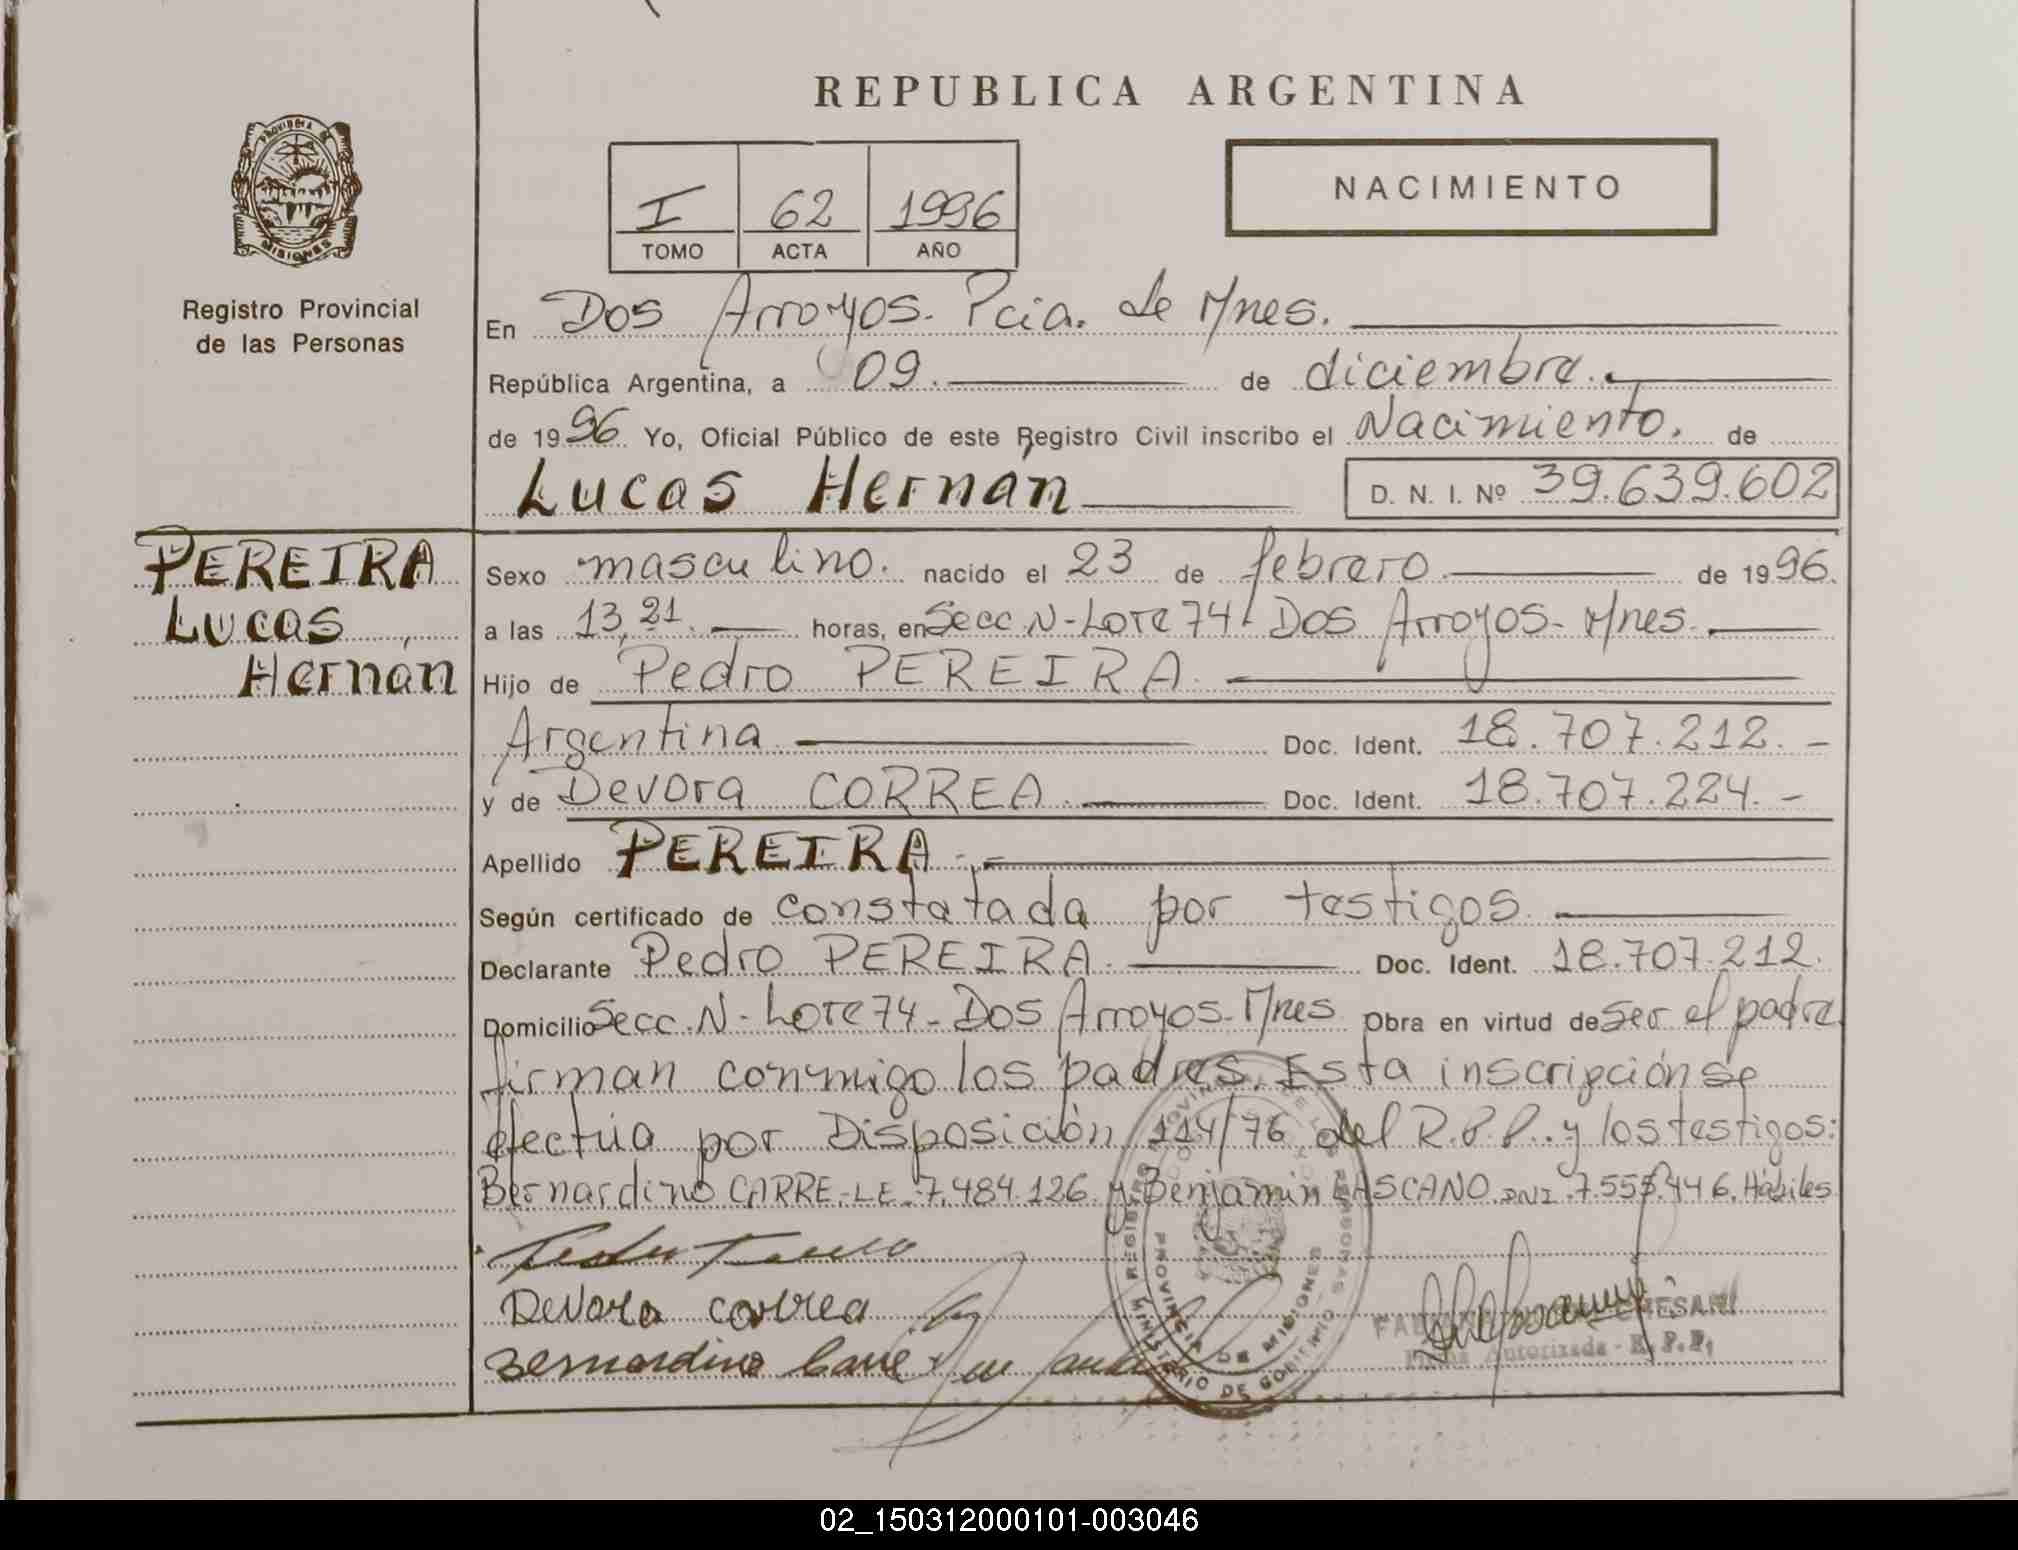 REPUBLICA ARGENTINA
PROVINCIA DE
MISIONES
Registro Provincial
de las Personas
I 62 1996
TOMO ACTA AÑO
NACIMIENTO
En Dos Arroyos. Pcia. de Mnes.
República Argentina, a 09. de diciembre.
de 1996 Yo, Oficial Público de este Registro Civil inscribo el Nacimiento. de
Lucas Hernán D. N. I. Nº 39.639.602
PEREIRA
Lucas
Hernán
Sexo masculino. nacido el 23 de febrero de 1996.
a las 13,21. horas, en Secc. N-Lote 74- Dos Arroyos- Mnes.
Hijo de Pedro PEREIRA.
Argentina Doc. Ident. 18.707.212.-
y de Devora CORREA. Doc. Ident. 18.707.224.-
Apellido PEREIRA.-
Según certificado de constatada por testigos.
Declarante Pedro PEREIRA. Doc. Ident. 18.707.212.
Domicilio Secc. N- Lote 74- Dos Arroyos- Mnes. Obra en virtud de ser el padre
firman conmigo los padres. Esta inscripción se
efectúa por Disposición 114/76 del R.P.P. y los testigos:
Bernardino CARRE.-L.E. 7.484.126 y Benjamin LASCANO DNI 7.555.446. Hábiles
Devora correa
Bernardino Carre
REGISTRO PROVINCIAL DE LAS PERSONAS
PROVINCIA DE MISIONES
MINISTERIO DE GOBIERNO
Firma Autorizada - R.P.P.
02_150312000101-003046